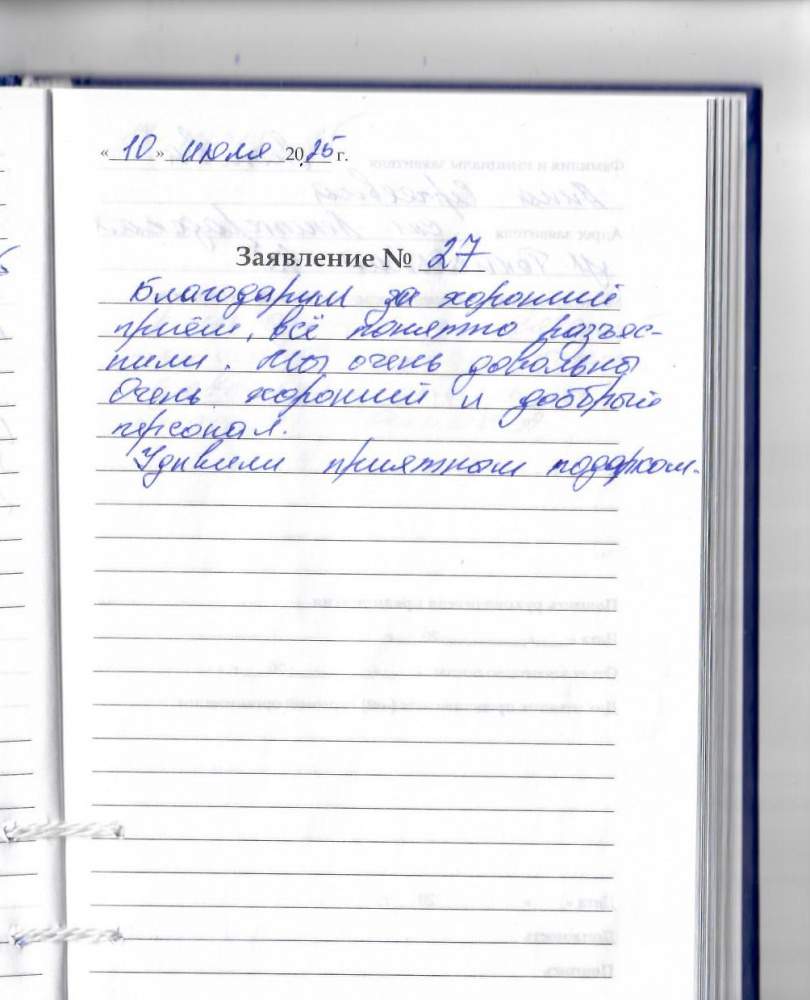 « 10 » июля 2025 г.
Заявление № 27
Благодарим за хороший
приём, всё понятно разъяс-
нили. Мы очень довольны
Очень хороший и добрый
персонал.
Удивили приятным подарком.